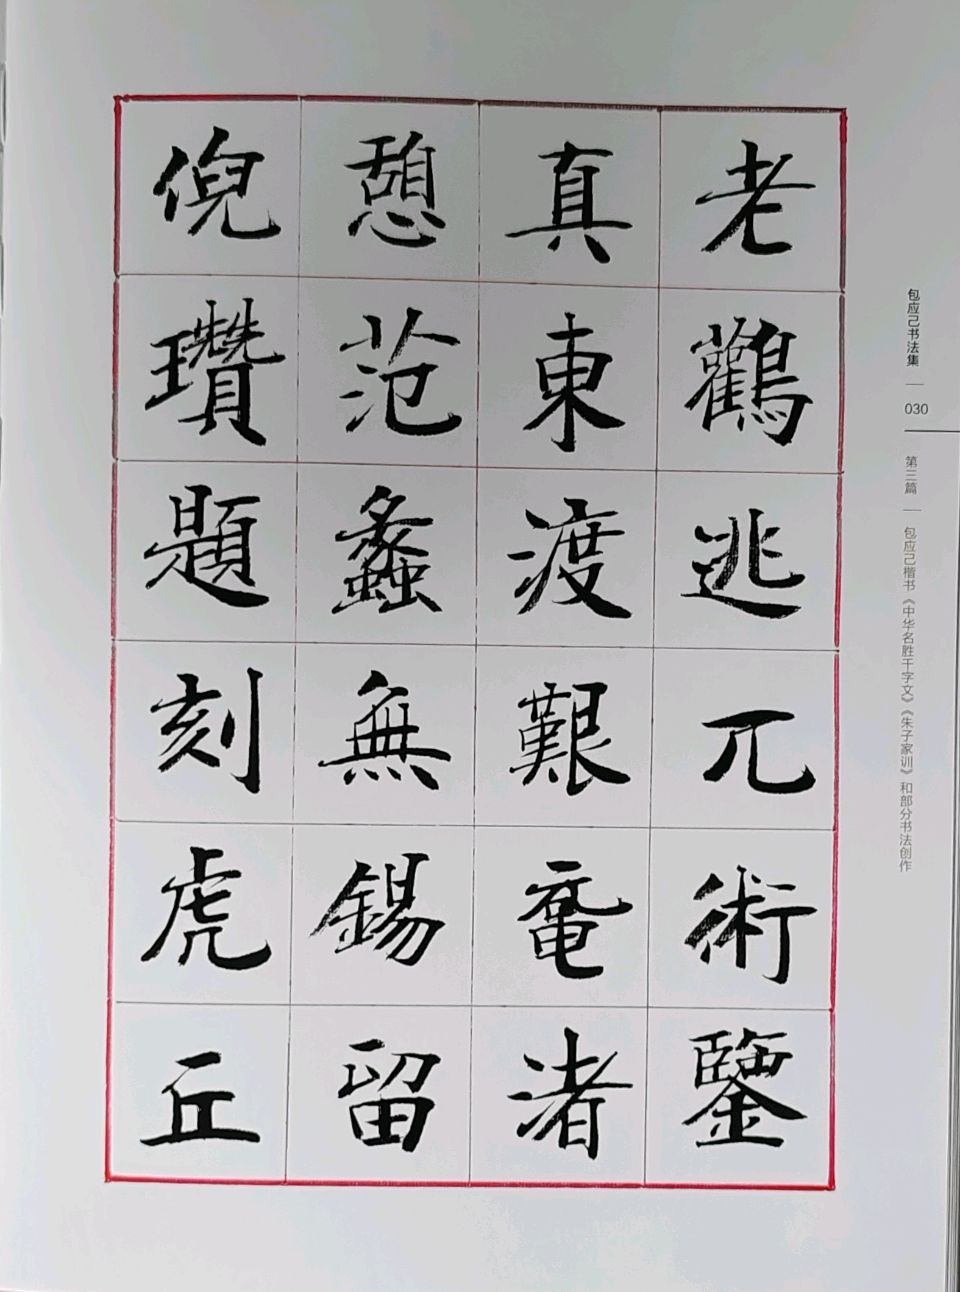 老鸛逃兀術鑒
真東渡艱鼋渚
憩范蠡無錫留
倪瓚題刻虎丘
包应己书法集 — 030
第三篇 — 包应己楷书《中华名胜千字文》《朱子家训》和部分书法创作